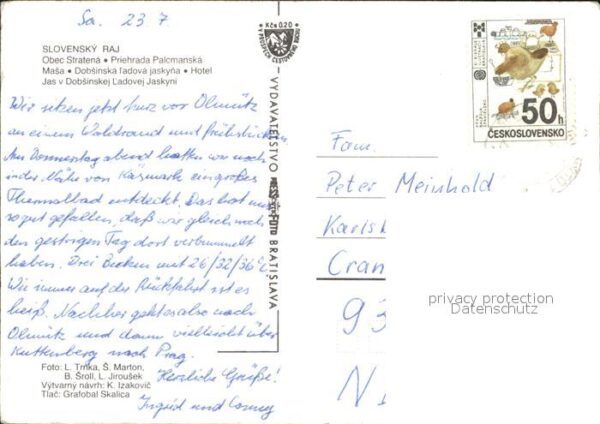 Sa. 23 7
SLOVENSKÝ RAJ
Obec Stratená • Priehrada Palcmanská
Maša • Dobšinská ľadová jaskyňa • Hotel
Jas v Dobšinskej Ľadovej Jaskyni
Wir sitzen jetzt kurz vor Olmütz
an einem Waldrand und frühstücken.
Am Donnerstag abend hatten wir noch
in der Nähe von Käsmark ein großes
Thermalbad entdeckt. Das hat uns
so gut gefallen, daß wir gleich noch
den gestrigen Tag dort verbummelt
haben. Drei Becken mit 26/32/36°C.
Wie immer auf der Rückfahrt ist es
heiß. Nachher geht es also nach
Olmütz und dann vielleicht über
Kuttenberg nach Prag.
Herzliche Grüße!
Ingrid und
Foto: L. Trnka, Š. Marton,
B. Šroll, L. Jiroušek
Výtvarný návrh: K. Izakovič
Tlač: Grafobal Skalica
Kčs 0,20
VYDAVATEĽSTVO BRATISLAVA
50h
ČESKOSLOVENSKO
Fam.
Peter Meinhold
Karls
Cran
93
N
privacy protection
Datenschutz